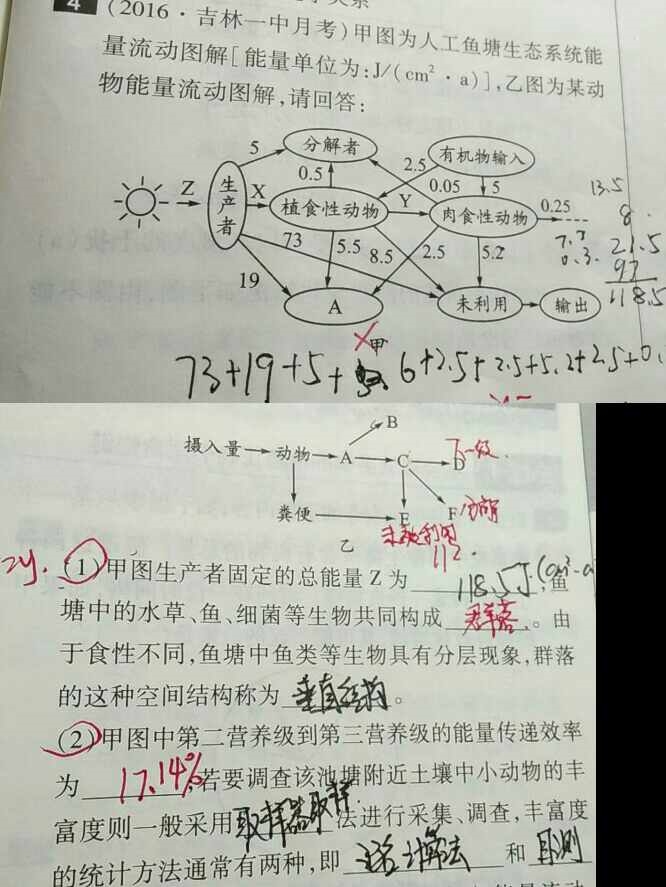 4 (2016·吉林一中月考)甲图为人工鱼塘生态系统能
量流动图解[能量单位为:J/(cm²·a)],乙图为某动
物能量流动图解,请回答:
5 分解者 2.5 有机物输入
0.5 0.05 5 13.5
Z 生产者 X 植食性动物 Y 肉食性动物 0.25 8
73 5.5 8.5 2.5 5.2 7.7 21.5
0.3 97
19 A 未利用 输出 118.5
甲
73+19+5+ 6+2.5+2.5+5.2+2.5+0.
B
摄入量 动物 A C D 下一级
粪便 E F
乙 未被利用
(1)甲图生产者固定的总能量 Z 为 118.5J/(cm²·a),鱼
塘中的水草、鱼、细菌等生物共同构成 群落 。由
于食性不同,鱼塘中鱼类等生物具有分层现象,群落
的这种空间结构称为 垂直结构 。
(2)甲图中第二营养级到第三营养级的能量传递效率
为 17.14% ,若要调查该池塘附近土壤中小动物的丰
富度则一般采用 取样器取样 法进行采集、调查,丰富度
的统计方法通常有两种,即 记名计算法 和 目测